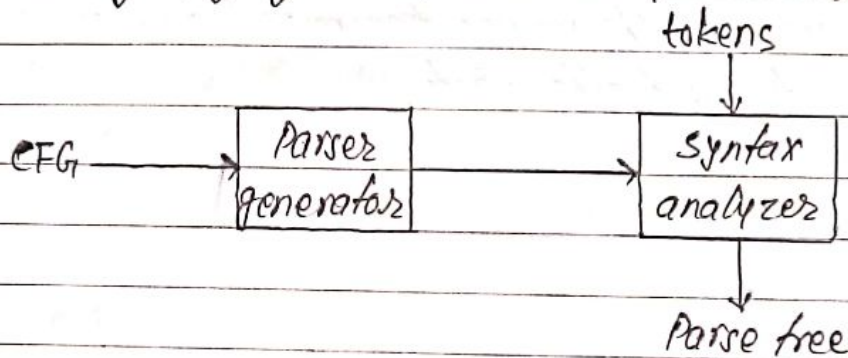 tokens
CFG
Parser
generator
syntax
analyzer
Parse tree